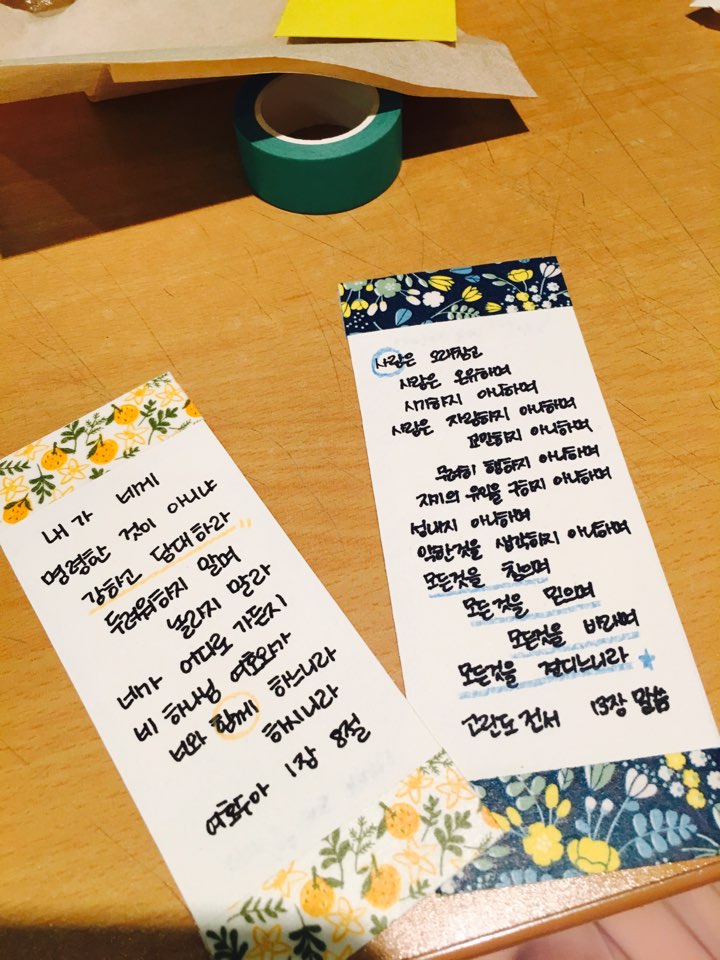 내가 네게
명령한 것이 아니냐
강하고 담대하라
두려워하지 말며
놀라지 말라
네가 어디로 가든지
네 하나님 여호와가
너와 함께 하느니라
하시니라
여호수아 1장 8절
사랑은 오래참고
사랑은 온유하며
시기하지 아니하며
사랑은 자랑하지 아니하며
교만하지 아니하며
무례히 행하지 아니하며
자기의 유익을 구하지 아니하며
성내지 아니하며
악한것을 생각하지 아니하며
모든것을 참으며
모든것을 믿으며
모든것을 바라며
모든것을 견디느니라
고린도전서 13장 말씀